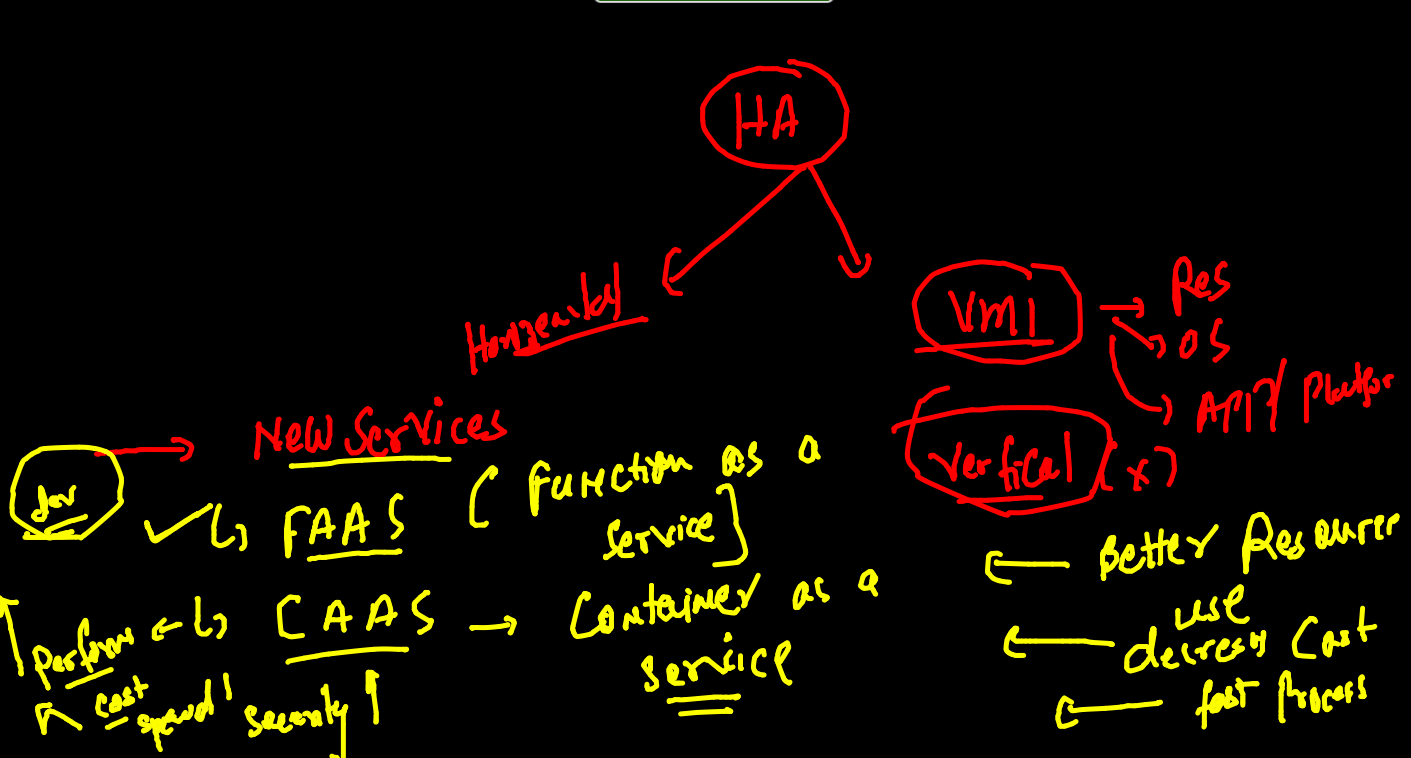 HA
Horizental
VM1
Res
OS
APP/ Platfor
Vertical (x)
New Services
dev
FAAS (Function as a
Service]
CAAS → Container as a
Service
Perform
Cost
Speed
Security
Better Resources
use
decress Cost
fast Process